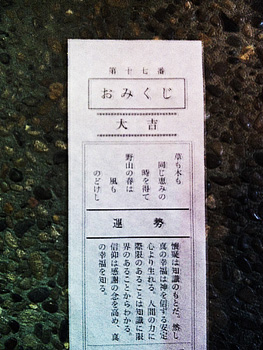 第十七番
おみくじ
大吉
草も木も
同じ恵みの
時を得て
野山の春は
風も
のどけし
運勢
懐疑は知識のもとだ。然し
真の幸福は神を信ずる安定
心より生れる。人間の力に
際限のあることは知識に限
界のあることからわかる。
信仰は感謝の念を高め、真
の幸福を知る。